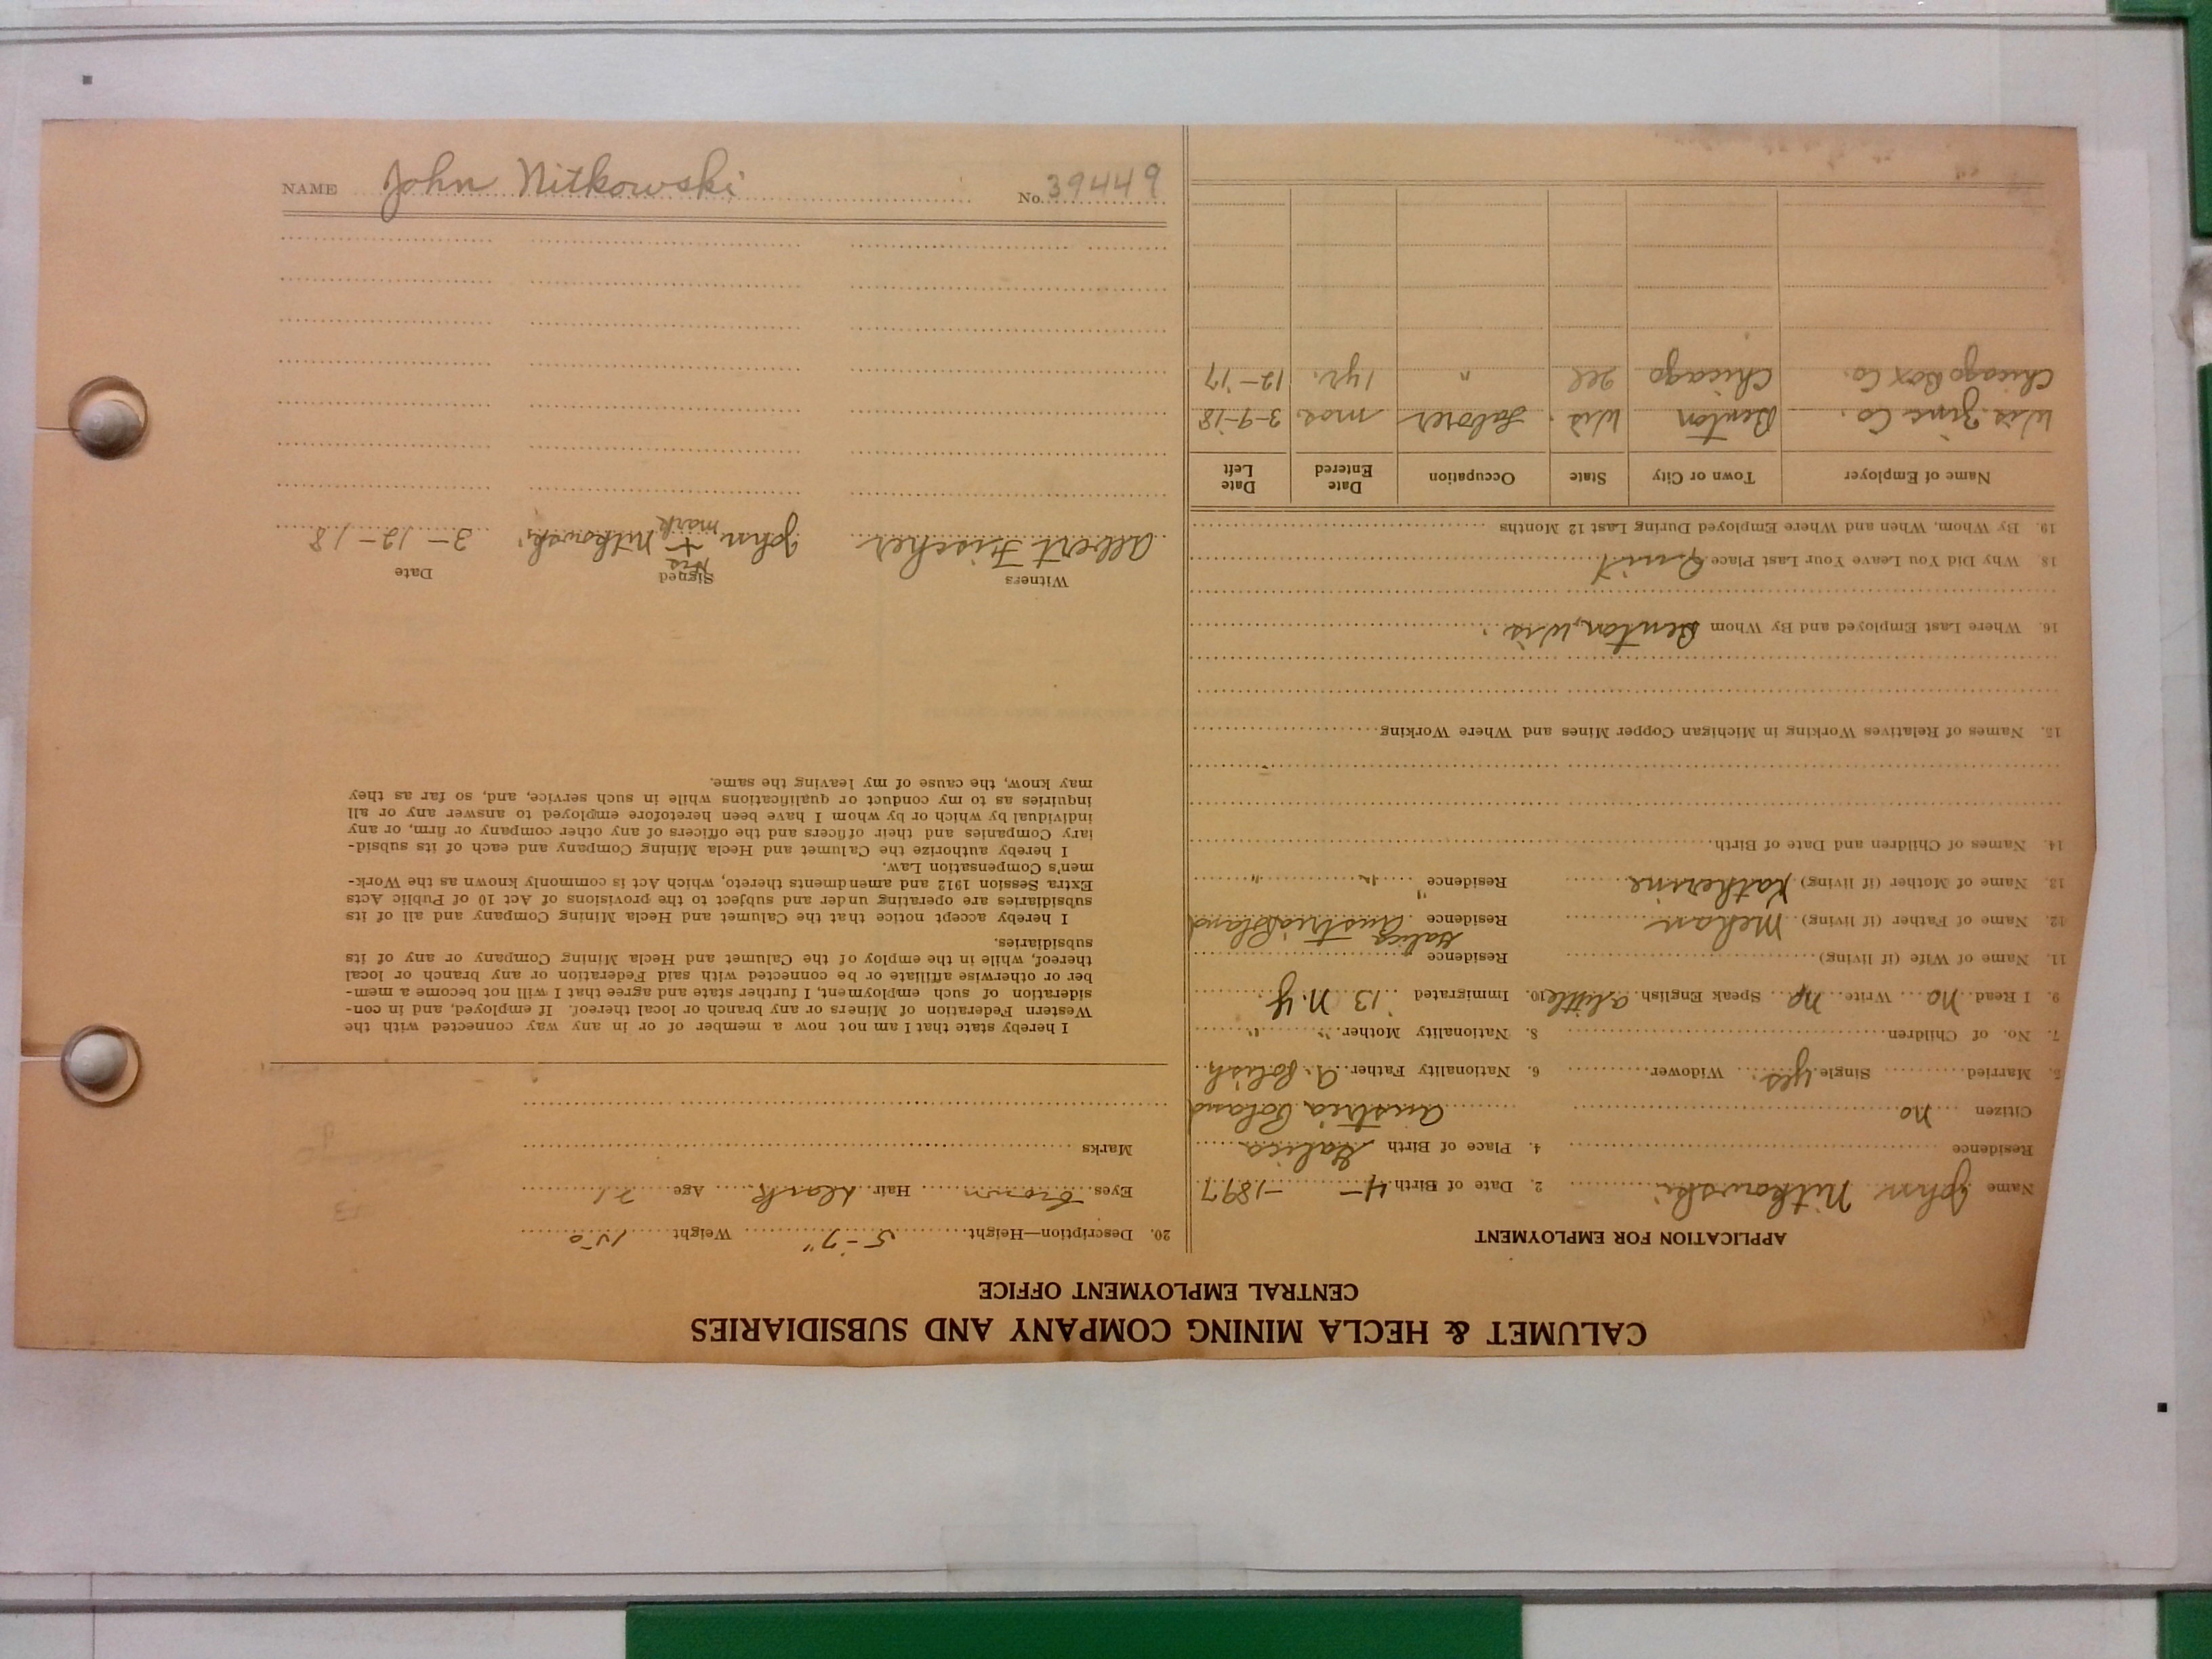 CALUMET & HECLA MINING COMPANY AND SUBSIDIARIES
CENTRAL EMPLOYMENT OFFICE
APPLICATION FOR EMPLOYMENT
Name John Nitkowski 2. Date of Birth 4 – – 1897
Residence 4. Place of Birth Galica
Citizen no Austria Poland
5. Married Single yes. Widower 6. Nationality Father A. Polish
7. No. of Children 8. Nationality Mother " "
9. I Read no Write no Speak English a little 10. Immigrated '13 N.Y.
11. Name of Wife (if living) Residence
Galica
12. Name of Father (if living) Mehan Residence Austria Poland
13. Name of Mother (if living) Katherine Residence " " "
14. Names of Children and Date of Birth
15. Names of Relatives Working in Michigan Copper Mines and Where Working
16. Where Last Employed and By Whom Benton, Wis.
18. Why Did You Leave Your Last Place Quit
19. By Whom, When and Where Employed During Last 12 Months
Name of Employer Town or City State Occupation Date Entered Date Left
Wis. Zinc Co. Benton Wis. Laborer mos. 3-9-18
Chicago Box Co. Chicago Ill " 1 yr. 12-17
20. Description—Height 5-7" Weight 150
Eyes Brown Hair Dark Age 21
Marks
I hereby state that I am not now a member of or in any way connected with the
Western Federation of Miners or any branch or local thereof. If employed, and in con-
sideration of such employment, I further state and agree that I will not become a mem-
ber or otherwise affiliate or be connected with said Federation or any branch or local
thereof, while in the employ of the Calumet and Hecla Mining Company or any of its
subsidiaries.
I hereby accept notice that the Calumet and Hecla Mining Company and all of its
subsidiaries are operating under and subject to the provisions of Act 10 of Public Acts
Extra Session 1912 and amendments thereto, which Act is commonly known as the Work-
men's Compensation Law.
I hereby authorize the Calumet and Hecla Mining Company and each of its subsid-
iary Companies and their officers and the officers of any other company or firm, or any
individual by which or by whom I have been heretofore employed to answer any or all
inquiries as to my conduct or qualifications while in such service, and, so far as they
may know, the cause of my leaving the same.
Witness Signed Date
His
Albert Fischer John + Nitkowski 3-12-18
mark
NAME John Nitkowski No. 39449